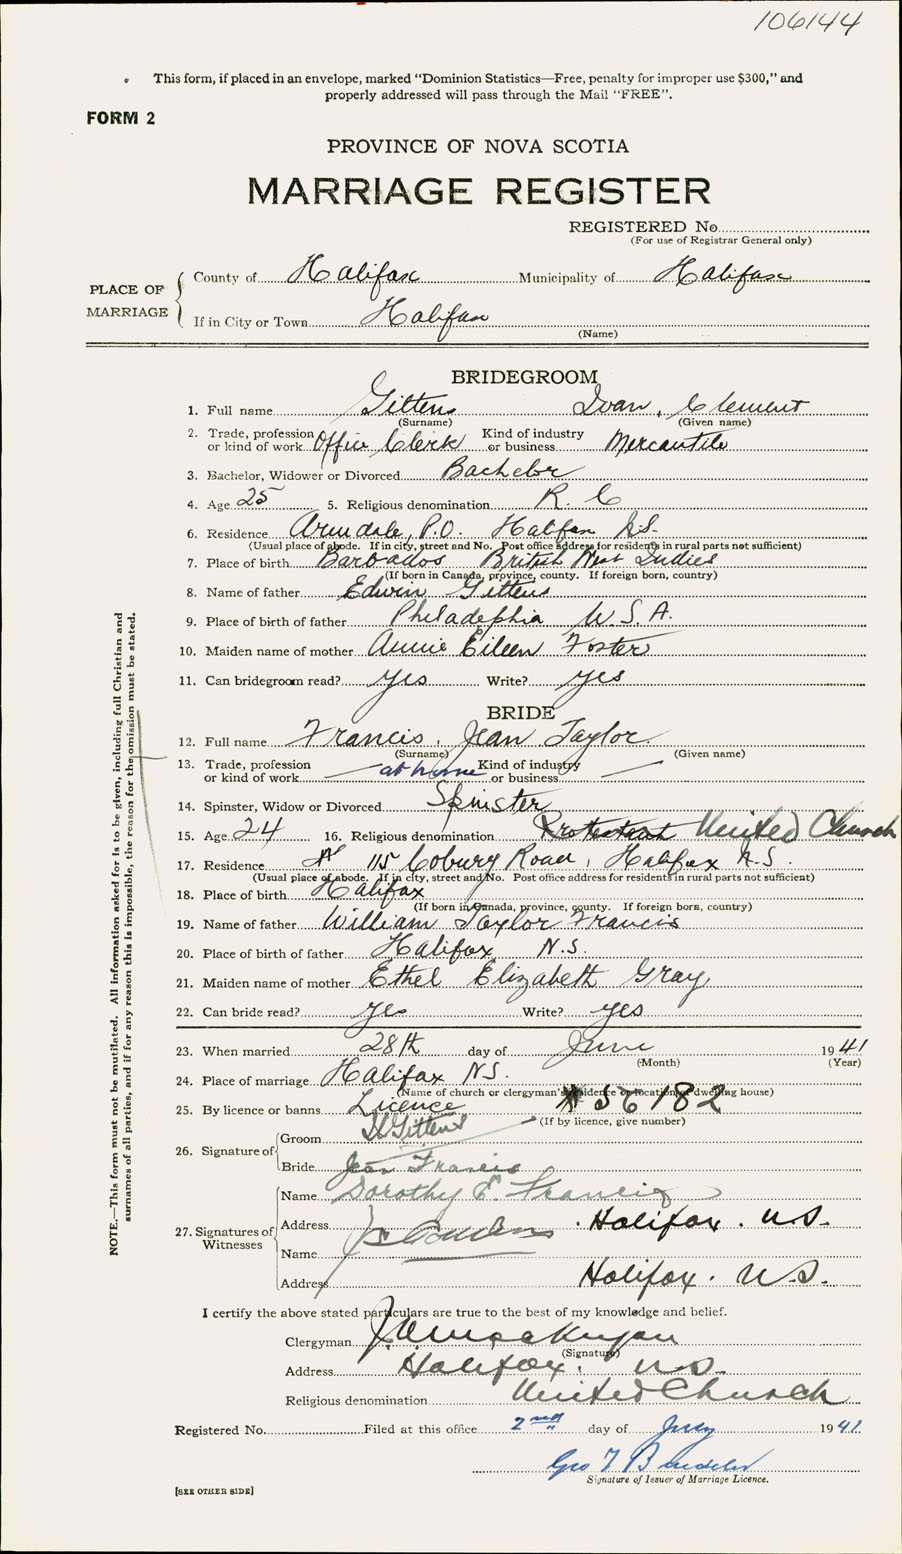 106144
This form, if placed in an envelope, marked "Dominion Statistics—Free, penalty for improper use $300," and
properly addressed will pass through the Mail "FREE".
FORM 2
PROVINCE OF NOVA SCOTIA
MARRIAGE REGISTER
REGISTERED No.
(For use of Registrar General only)
PLACE OF MARRIAGE
County of Halifax Municipality of Halifax
If in City or Town Halifax
(Name)
BRIDEGROOM
1. Full name Gittens Ivan, Clement
(Surname) (Given name)
2. Trade, profession or kind of work Office Clerk Kind of industry or business Mercantile
3. Bachelor, Widower or Divorced Bachelor
4. Age 25 5. Religious denomination R. C
6. Residence Armdale, P.O. Halifax N.S.
(Usual place of abode. If in city, street and No. Post office address for residents in rural parts not sufficient)
7. Place of birth Barbados British West Indies
(If born in Canada, province, county. If foreign born, country)
8. Name of father Edwin Gittens
9. Place of birth of father Philadephia U.S.A.
10. Maiden name of mother Annie Eileen Foster
11. Can bridegroom read? yes Write? yes
BRIDE
12. Full name Francis, Jean Taylor.
(Surname) (Given name)
13. Trade, profession or kind of work — at home Kind of industry or business —
14. Spinster, Widow or Divorced Spinster
15. Age 24 16. Religious denomination Protestant United Church
17. Residence 115 Coburg Road, Halifax N.S.
(Usual place of abode. If in city, street and No. Post office address for residents in rural parts not sufficient)
18. Place of birth Halifax
(If born in Canada, province, county. If foreign born, country)
19. Name of father William Taylor Francis
20. Place of birth of father Halifax N.S.
21. Maiden name of mother Ethel Elizabeth Gray
22. Can bride read? yes Write? yes
23. When married 28th day of June 1941
(Month) (Year)
24. Place of marriage Halifax N.S.
(Name of church or clergyman's residence or location of dwelling house)
25. By licence or banns Licence # 56182
(If by licence, give number)
26. Signature of
Groom Gittens
Bride Jean Francis
27. Signatures of Witnesses
Name Dorothy E. Francis
Address Halifax. N.S.
Name
Address Halifax. N.S.
I certify the above stated particulars are true to the best of my knowledge and belief.
Clergyman
(Signature)
Address Halifax. N.S.
Religious denomination United Church
Registered No. Filed at this office 2nd day of July 1941
Geo T
Signature of Issuer of Marriage Licence.
[SEE OTHER SIDE]
NOTE.—This form must not be mutilated. All information asked for is to be given, including full Christian and
surnames of all parties, and if for any reason this is impossible, the reason for the omission must be stated.